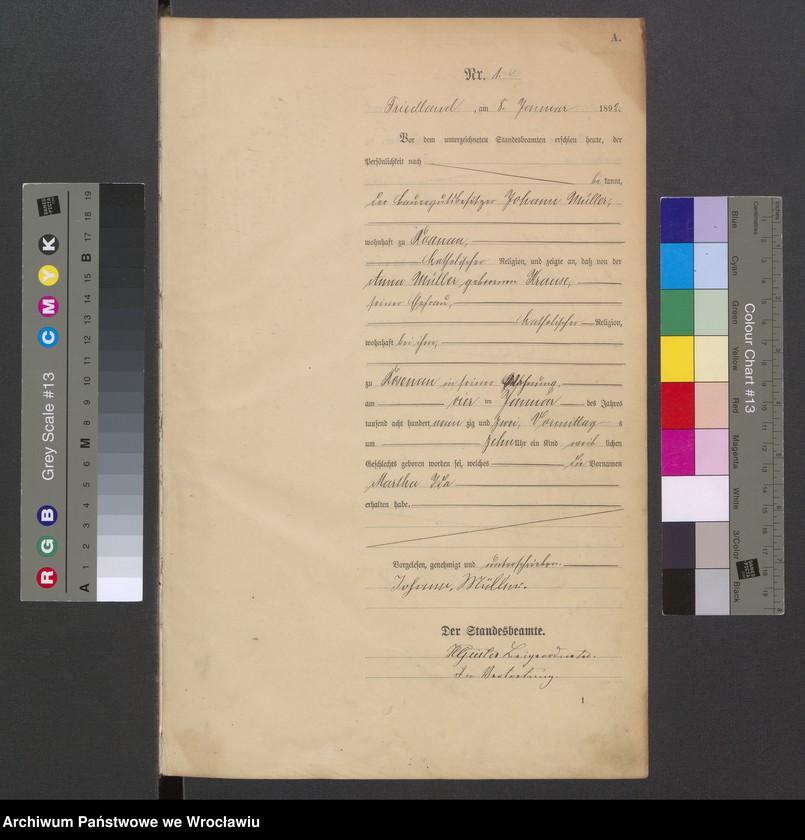 A.
Nr. 1.
Friedland, am 8. Januar 1892.
Vor dem unterzeichneten Standesbeamten erschien heute, der
Persönlichkeit nach
be kannt,
der Bauergutsbesitzer Johann Müller,
wohnhaft zu Rosenau,
katholischer Religion, und zeigte an, daß von der
Anna Müller geborenen Krause,
seiner Ehefrau,
katholischer Religion,
wohnhaft bei ihm,
zu Rosenau in seiner Wohnung,
am vier ten Januar des Jahres
tausend acht hundert neun zig und zwei, Vormittag s
um zehn Uhr ein Kind weib lichen
Geschlechts geboren worden sei, welches die Vornamen
Martha Ida
erhalten habe.
Vorgelesen, genehmigt und unterschrieben.
Johann Müller.
Der Standesbeamte.
Beigeordneter.
In Vertretung.
1
Grey Scale #13
R G B C M Y K
A 1 2 3 4 5 6 M 8 9 10 11 12 13 14 15 B 17 18 19
Colour Chart #13
Blue
Cyan
Green
Yellow
Red
Magenta
White
3/Color
Black
Centimetres
Inches
Archiwum Państwowe we Wrocławiu